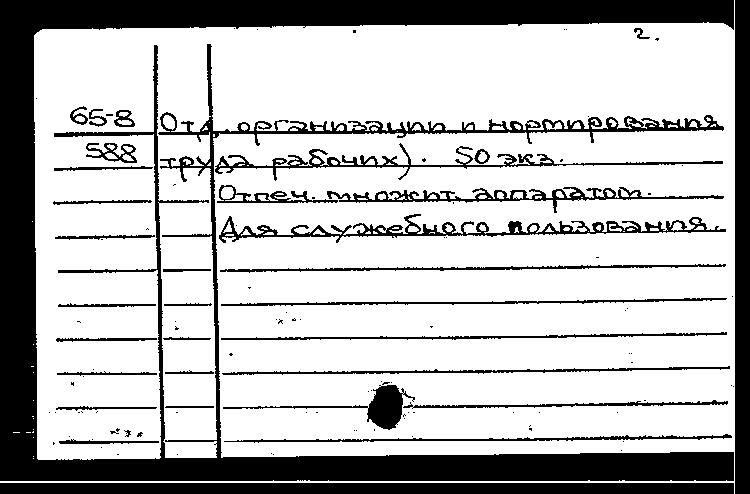 2.
65-8 Отд. организации и нормирования
588 труда рабочих). 50 экз.
Отпеч. множит. аппаратом.
Для служебного пользования.